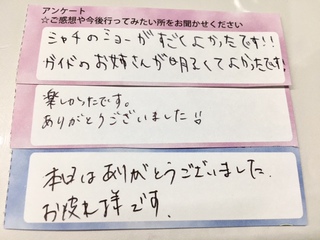 アンケート
☆ご感想や今後行ってみたい所をお聞かせください
シャチのショーがすごくよかったです!!
ガイドのお姉さんが明るくてよかったです!
楽しかったです。
ありがとうございました!!
本日はありがとうございました.
お疲れ様です.